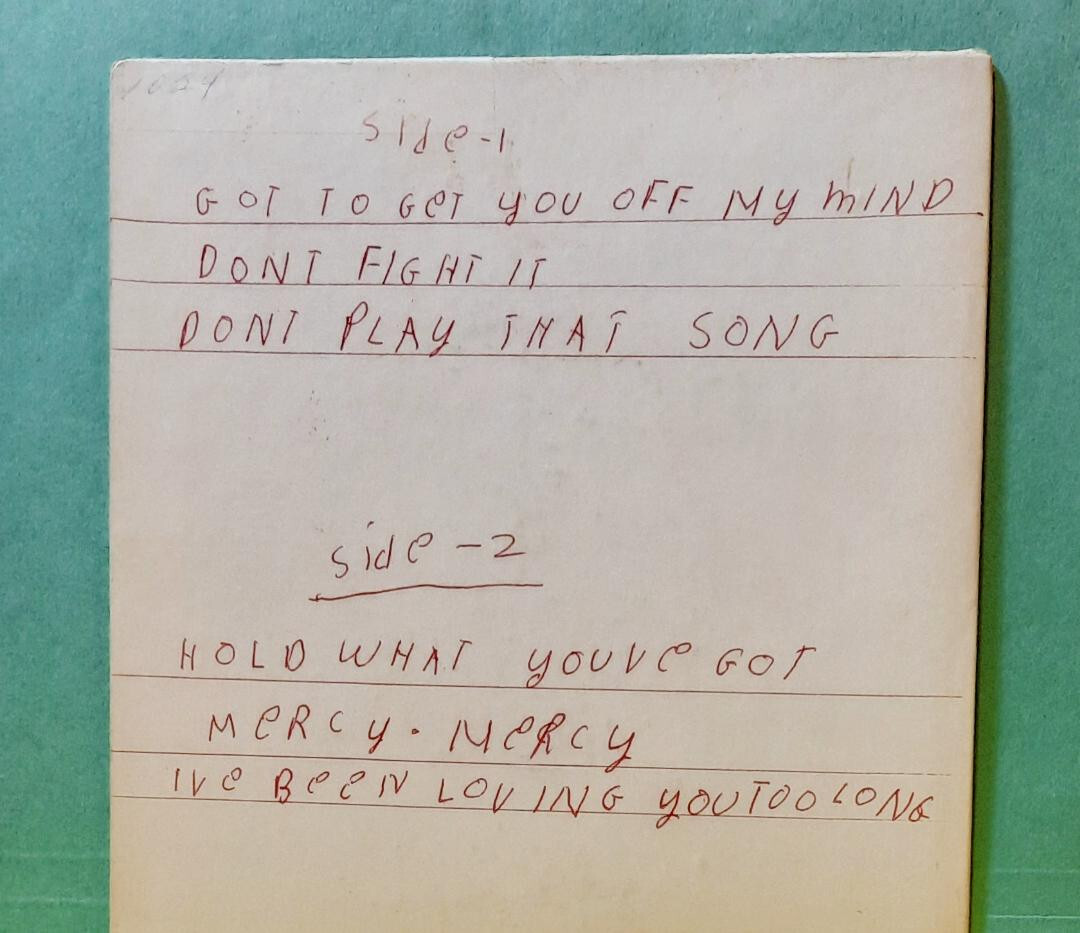 Side-1
GOT TO GeT YOU OFF MY MIND
DONT FIGHT IT
DONT PLAY THAT SONG
Side-2
HOLD WHAT YOUVe GOT
MeRCY. MeRCY
IVe BeeN LOVING YOU TOO LONG